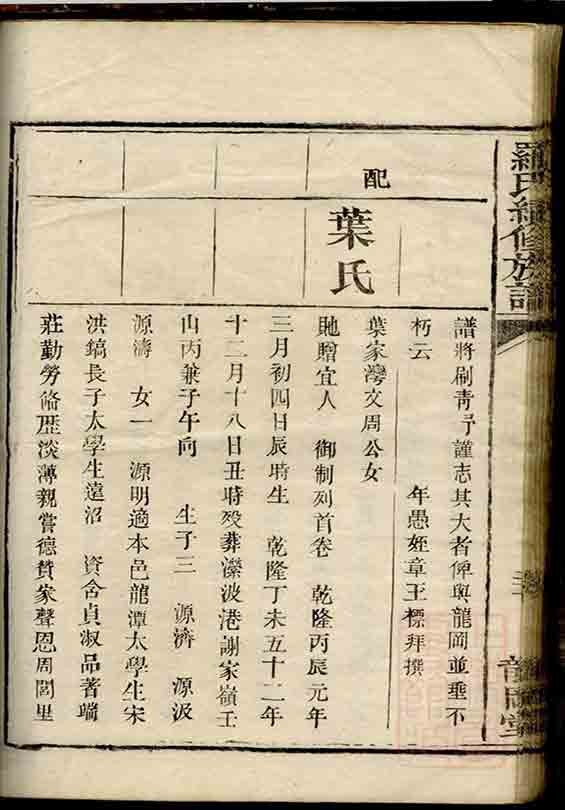 羅氏續修族譜
譜將刷青予謹志其大者俾與龍岡並垂不
朽云 年愚姪章王標拜撰
配
葉氏
葉家灣文周公女
貤贈宜人 御制列首卷 乾隆丙辰元年
三月初四日辰時生 乾隆丁未五十二年
十二月十八日丑時歿葬濴波港謝家嶺壬
山丙兼子午向 生子三 源濟 源汲
源濤 女一 源明適本邑龍潭太學生宋
洪鎬長子太學生遠沼 資含貞淑品著端
莊勤勞俻歷淡薄親嘗德賛家聲恩周閭里